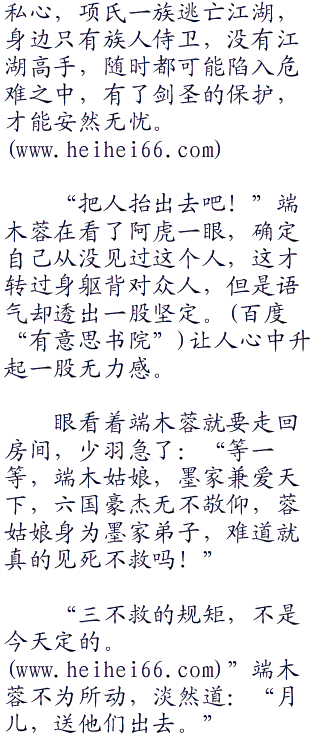 私心，项氏一族逃亡江湖，
身边只有族人侍卫，没有江
湖高手，随时都可能陷入危
难之中，有了剑圣的保护，
才能安然无忧。
(www.heihei66.com)
“把人抬出去吧！”端
木蓉在看了阿虎一眼，确定
自己从没见过这个人，这才
转过身躯背对众人，但是语
气却透出一股坚定。(百度
“有意思书院”)让人心中升
起一股无力感。
眼看着端木蓉就要走回
房间，少羽急了：“等一
等，端木姑娘，墨家兼爱天
下，六国豪杰无不敬仰，蓉
姑娘身为墨家弟子，难道就
真的见死不救吗！”
“三不救的规矩，不是
今天定的。
(www.heihei66.com)”端木
蓉不为所动，淡然道：“月
儿，送他们出去。”